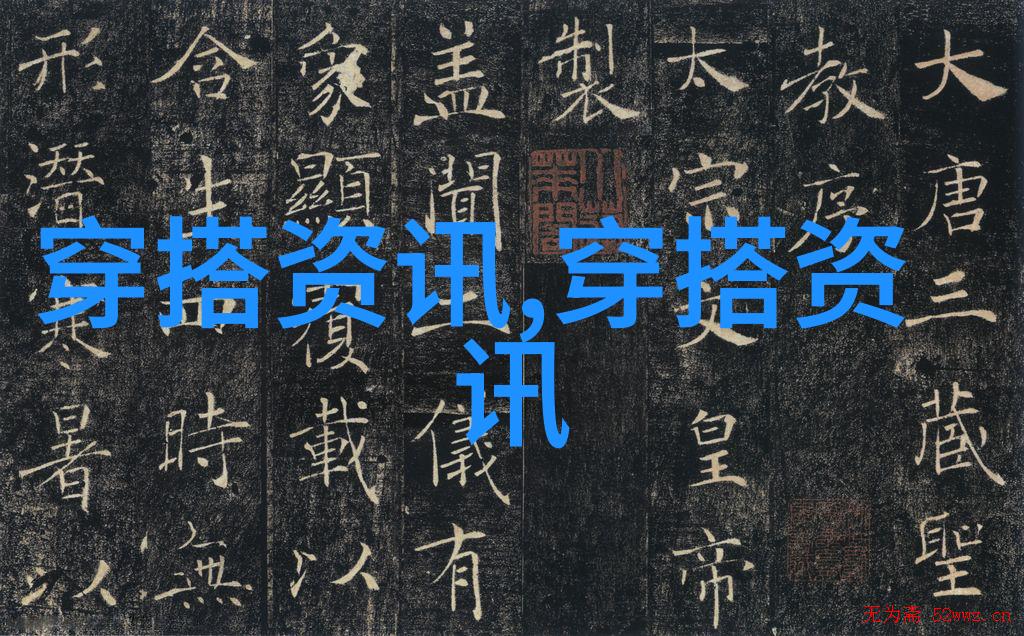 穿搭资讯,穿搭资
讯
大唐三藏聖
教序
太宗文皇帝
製
盖聞二儀有
象顯覆載以
含生四時無
形潛寒暑以
无为斋 52wwz.cn